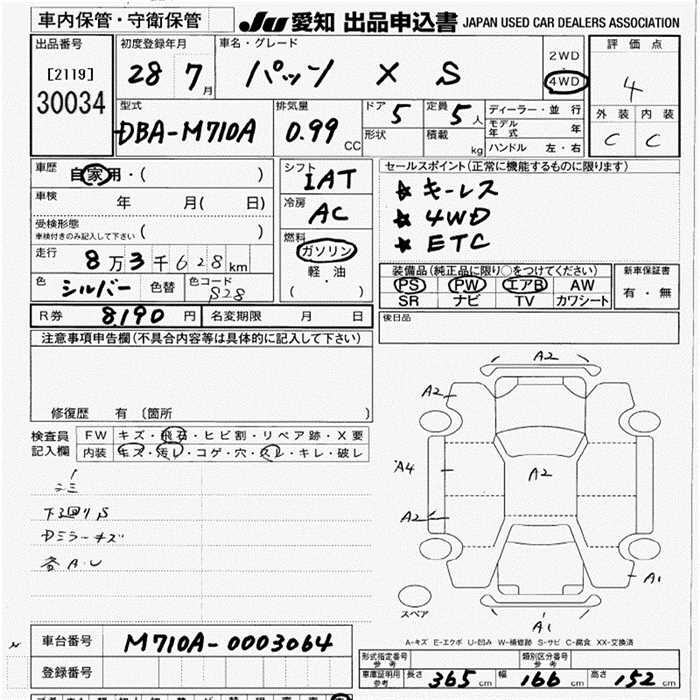 車内保管・守衛保管 JU 愛知 出品申込書 JAPAN USED CAR DEALERS ASSOCIATION
出品番号 初度登録年月 車名・グレード 2WD 評価点
[2119] 28 7月 パッソ X S 4WD 4
30034 型式 排気量 ドア 5 定員 5人 ディーラー・並行 外装 内装
DBA-M710A 0.99 CC 形状 積載 kg モデル年式 年 C C
ハンドル 左・右
車歴 自家用・( ) シフト IAT セールスポイント(正常に機能するものに限ります)
車検 年 月( 日) 冷房 AC ★ キーレス
受検形態 ( ) ★ 4WD
車検付きのみ記入して下さい 燃料 ★ ETC
走行 8万3千628km ガソリン 装備品(純正品に限り○をつけてください) 新車保証書
色 シルバー 色替 色コード S28 軽油 PS PW エアB AW 有・無
( ) SR ナビ TV カワシート
R券 8190円 名変期限 月 日 後日品
注意事項申告欄(不具合内容等は具体的に記入して下さい)
修復歴 有 〔箇所 〕
検査員 FW キズ・飛石・ヒビ割・リペア跡・X要
記入欄 内装 キズ・汚レ・コゲ・穴・スレ・キレ・破レ
下廻りS
Dミラーキズ
各A・U
A2
A2
A4 A2
A2
A1
スペア A1
A-キズ E-エクボ U-凹み W-補修跡 S-サビ C-腐食 XX-交換済
車台番号 M710A-0003064
登録番号
形式指定番号 参考 類別区分番号 参考
車庫証明用 参考 長さ 365cm 幅 166cm 高さ 152cm